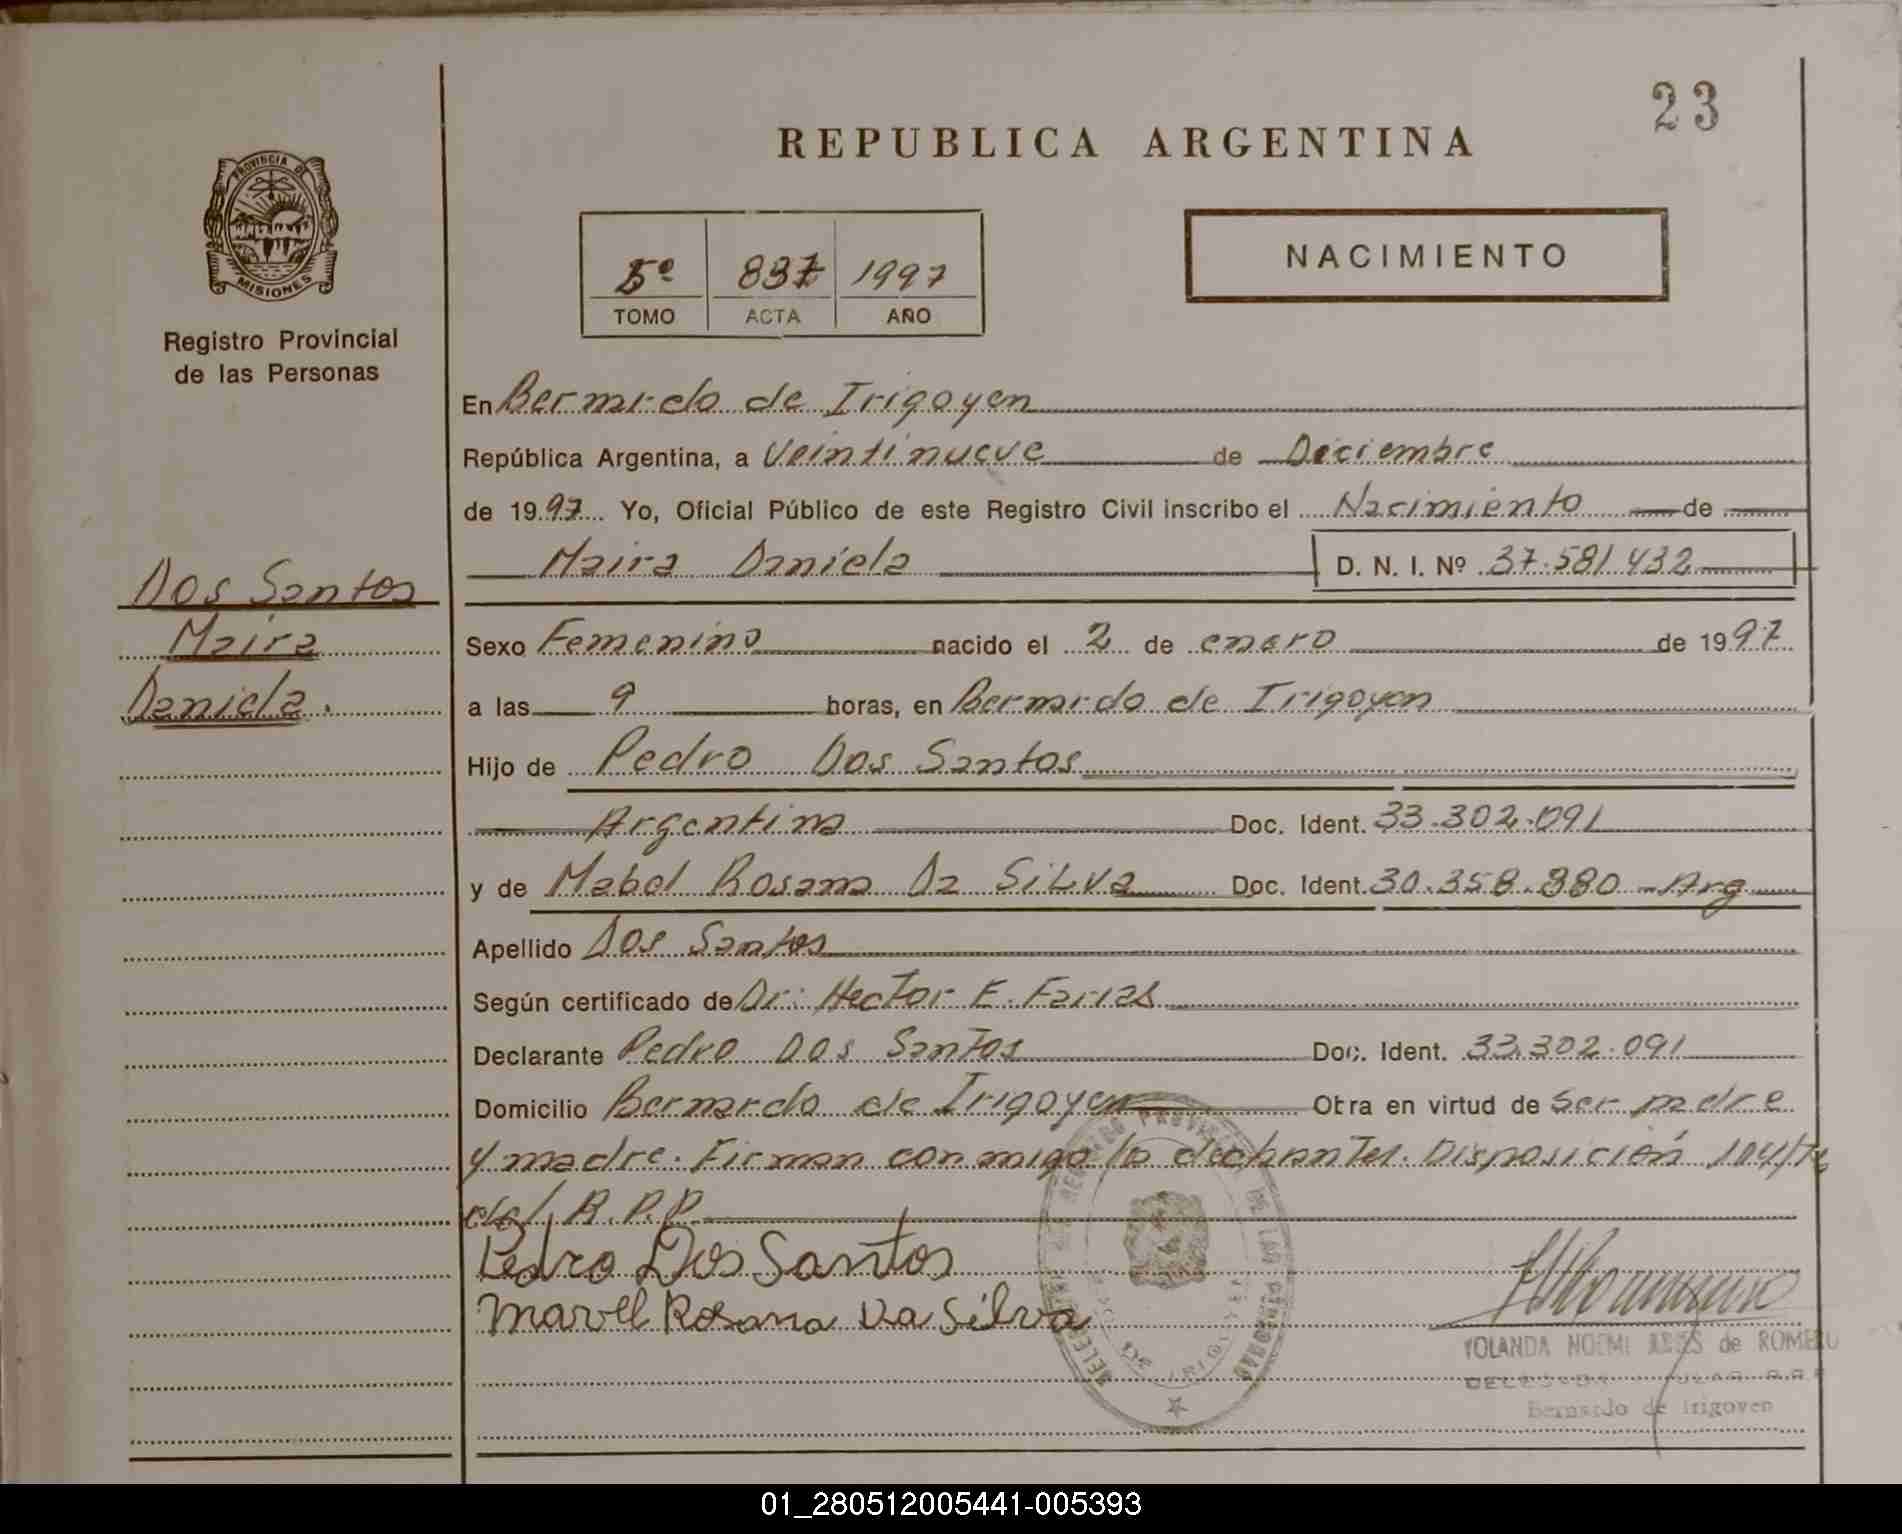 23
REPUBLICA ARGENTINA
PROVINCIA DE
MISIONES
Registro Provincial
de las Personas
5º 837 1997
TOMO ACTA AÑO
NACIMIENTO
En Bernardo de Irigoyen
República Argentina, a Veintinueve de Diciembre
de 1997 Yo, Oficial Público de este Registro Civil inscribo el Nacimiento de
Maira Daniela D. N. I. Nº 37.581.432
Dos Santos
Maira
Daniela.
Sexo Femenino nacido el 2 de enero de 1997
a las 9 horas, en Bernardo de Irigoyen
Hijo de Pedro Dos Santos
Argentina Doc. Ident. 33.302.091
y de Mabel Rosana Da SiLVa Doc. Ident. 30.358.880 Arg
Apellido Dos Santos
Según certificado de Dr. Hector E. Farias
Declarante Pedro Dos Santos Doc. Ident. 33.302.091
Domicilio Bernardo de Irigoyen Otra en virtud de ser padre
y madre. Firman conmigo Disposición
del R.P.P.
Pedro Dos Santos
Mavel Rosana Da Silva
YOLANDA NOEMI de ROMERO
Bernardo de Irigoyen
01_280512005441-005393